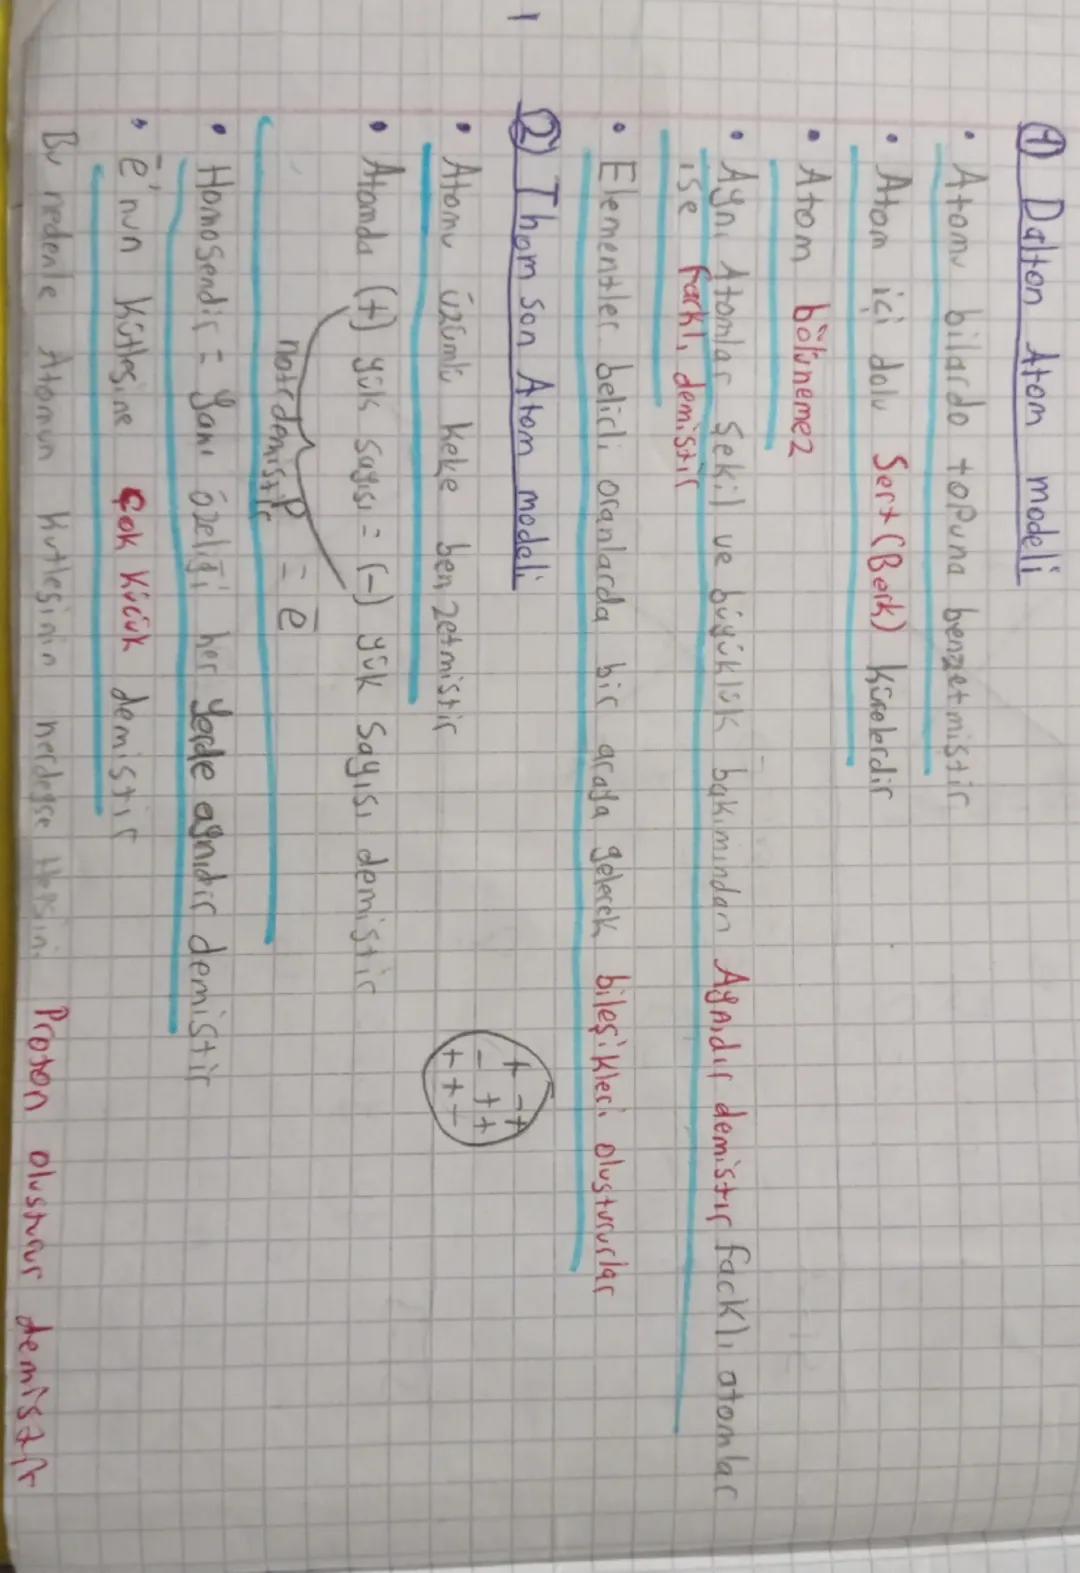 ① Dalton Atom modeli
• Atomu bilardo topuna benzetmistir
• Atom içi dolu Sert (Berk) Kürelerdir
• Atom bölünemez
• Aynı Atomlar Şekil ve büyüklük bakımından Aynıdır demistir farklı atomlar
ise farklı demistir
• Elementler belirli oranlarda bir araya gelerek bileşikleri oluştururlar
② Thomson Atom modeli
• Atomu üzümlü keke benzetmistir
+ - +
- + +
+ + +
• Atomda (+) yük sayısı = (-) yük sayısı demistir
P = ē
notrdemistir
• Homosendir = Yani özeliği her yerde aynıdır demistir
• ē'nun Kütlesine çok küçük demistir
Bu nedenle Atomun kutlesinin nerdeyse Hepsini Proton olusturur demistir